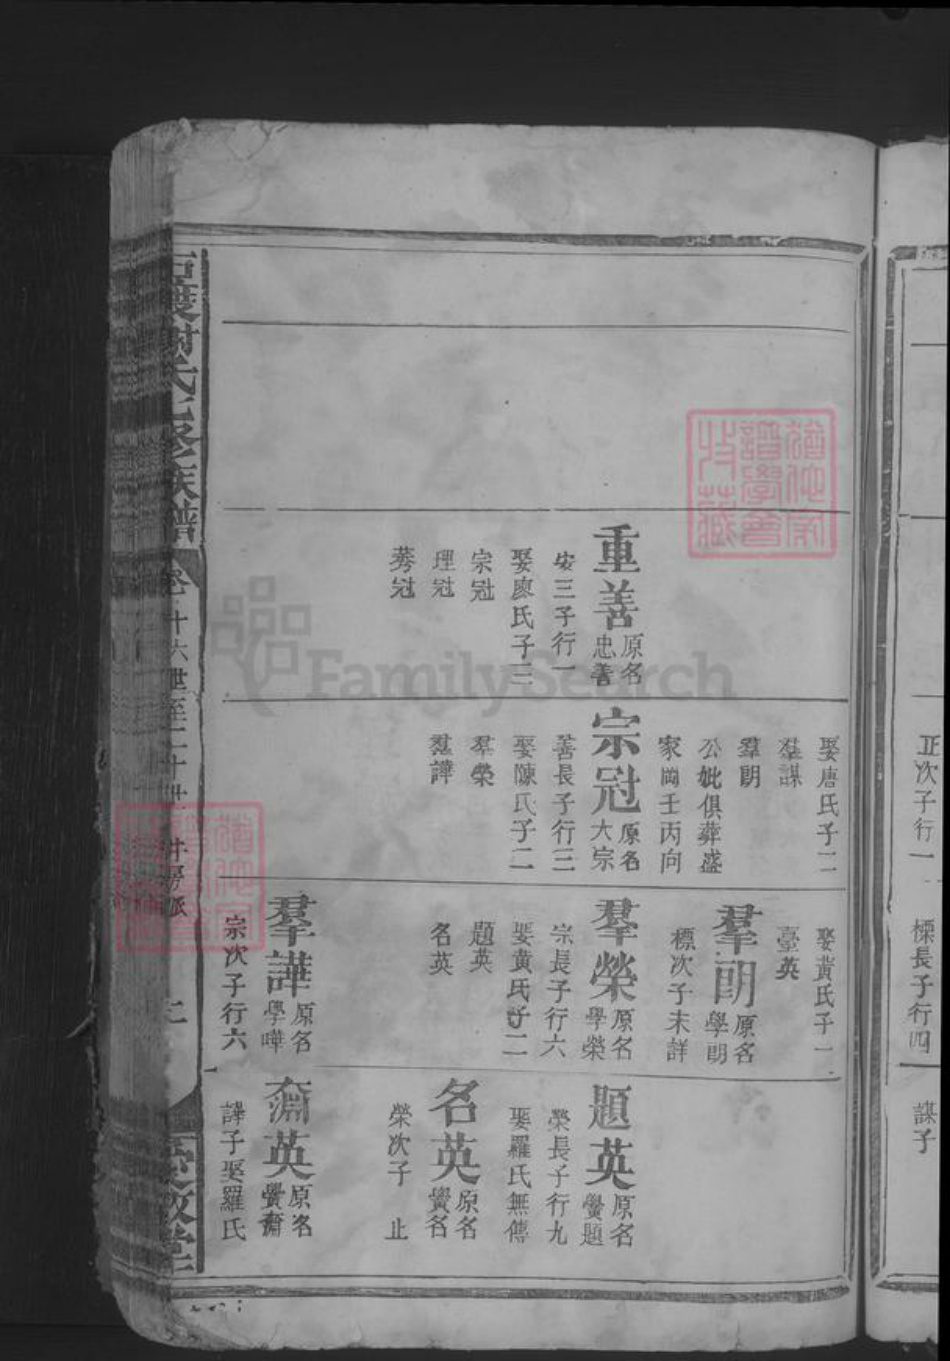 正次子行一
櫟長子行四
謀子
重善 原名忠善
安三子行一
娶廖氏子三
宗冠
理冠
蓦冠
娶唐氏子二
羣謀
羣朗
公妣俱葬盛
家崗壬丙向
宗冠 原名大宗
善長子行三
娶陳氏子二
羣榮
羣譁
娶黃氏子一
臺英
羣朗 原名學朗
標次子未詳
羣榮 原名學榮
宗長子行六
娶黃氏子二
題英
名英
羣譁 原名學嘩
宗次子行六
題英 原名黌題
榮長子行九
娶羅氏無傳
名英 原名黌名
榮次子 止
奫英 原名黌奫
譁子娶羅氏
氏七修族譜
卷 十六世至二十世
敬堂
FamilySearch